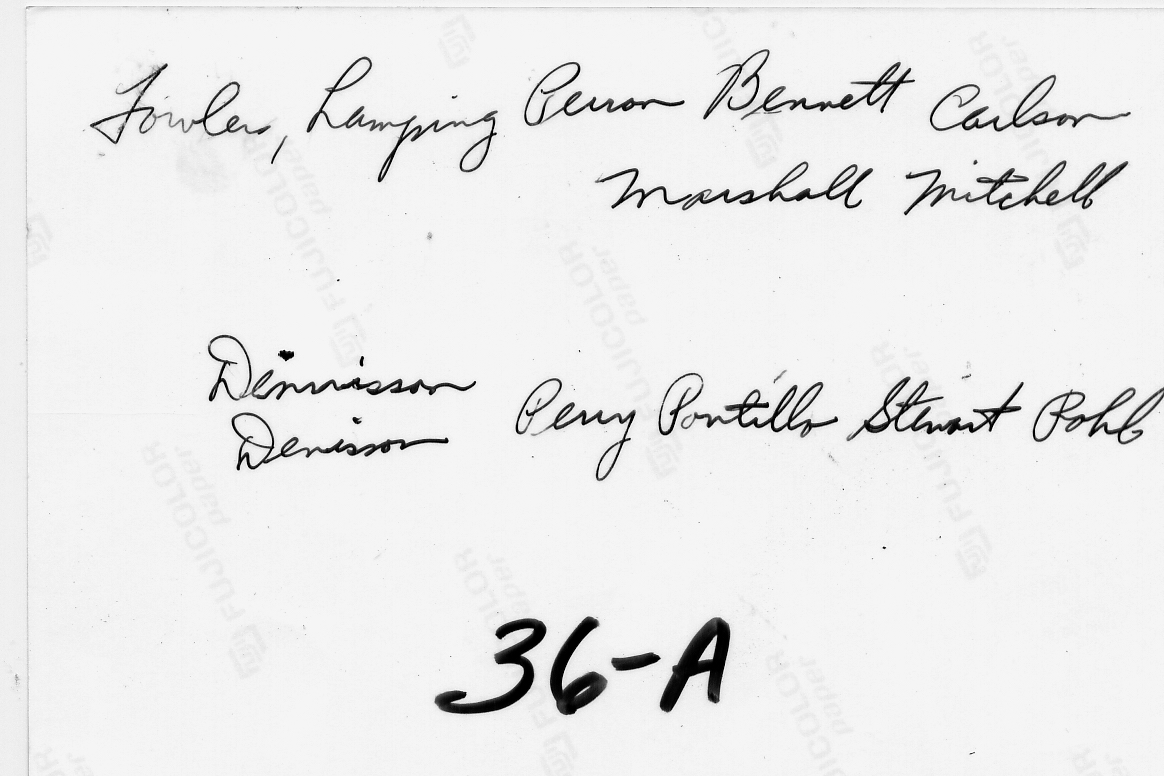 Fowler, Lamping Perron Bennett Carlson
Marshall Mitchell
Dennisson
Denisson
Perry Pontillo Stewart Pohl
36-A
FUJICOLOR
paper.